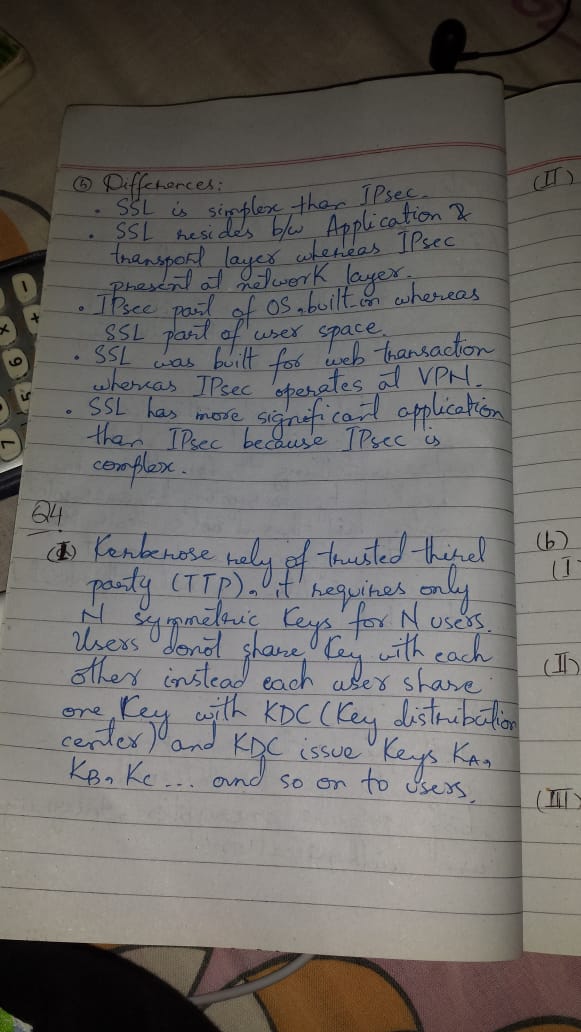 (5) Differences:
• SSL is simplex than IPsec.
• SSL resides b/w Application &
transport layer whereas IPsec
present at network layer.
• IPsec part of OS, built in whereas
SSL part of user space.
• SSL was built for web transaction
whereas IPsec operates at VPN.
• SSL has more significant application
than IPsec because IPsec is
complex.
Q4
(I) Kerberose rely of trusted third
party (TTP). it requires only
N symmetric Keys for N users.
Users donot share Key with each
other instead each user share
one Key with KDC (Key distribution
center) and KDC issue Keys KA,
KB, KC ... and so on to users.
(II)
(b)
(I
(II)
(III)
-
+
x
6
5
7